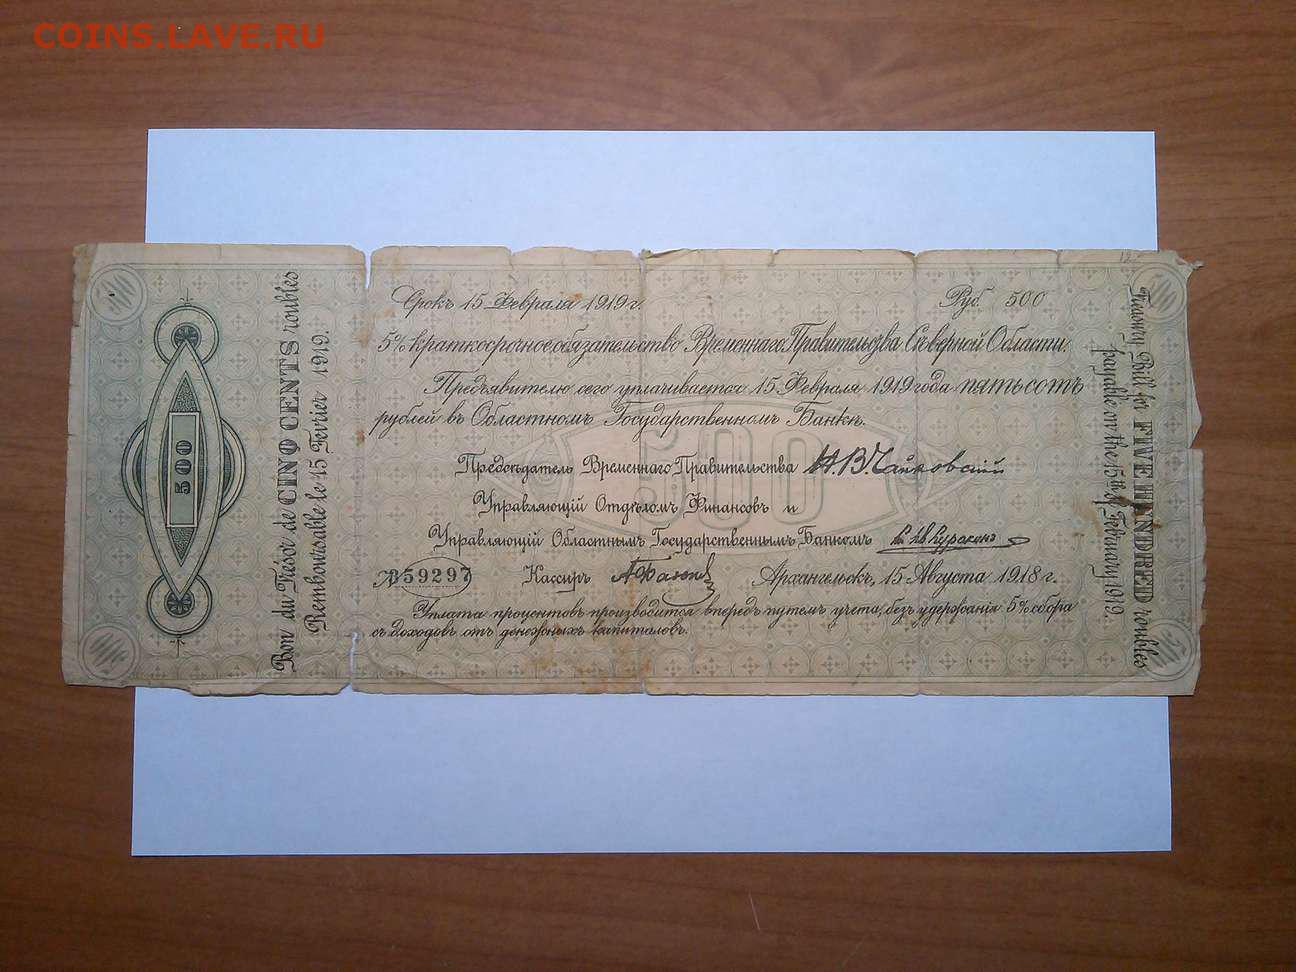 COINS.LAVE.RU
Срокъ 15 Февраля 1919 г.
Руб. 500
5% Краткосрочное обязательство Временнаго Правительства Сѣверной Области.
Предъявителю сего уплачивается 15 Февраля 1919 года пятьсотъ
рублей въ Областномъ Государственномъ Банкѣ.
Предсѣдатель Временнаго Правительства Н. В. Чайковскій
Управляющій Отдѣломъ Финансовъ и
Управляющій Областнымъ Государственнымъ Банкомъ
№ В 59297
Кассиръ
Архангельскъ, 15 Августа 1918 г.
Уплата процентовъ производится впередъ путемъ учета, безъ удержанія 5% сбора
съ доходовъ отъ денежныхъ капиталовъ.
Bon du Trésor de CINQ CENTS roubles
Remboursable le 15 Fevrier 1919.
Treasury Bill for FIVE HUNDRED roubles
payable on the 15th of February 1919.
500
500
500
500
500